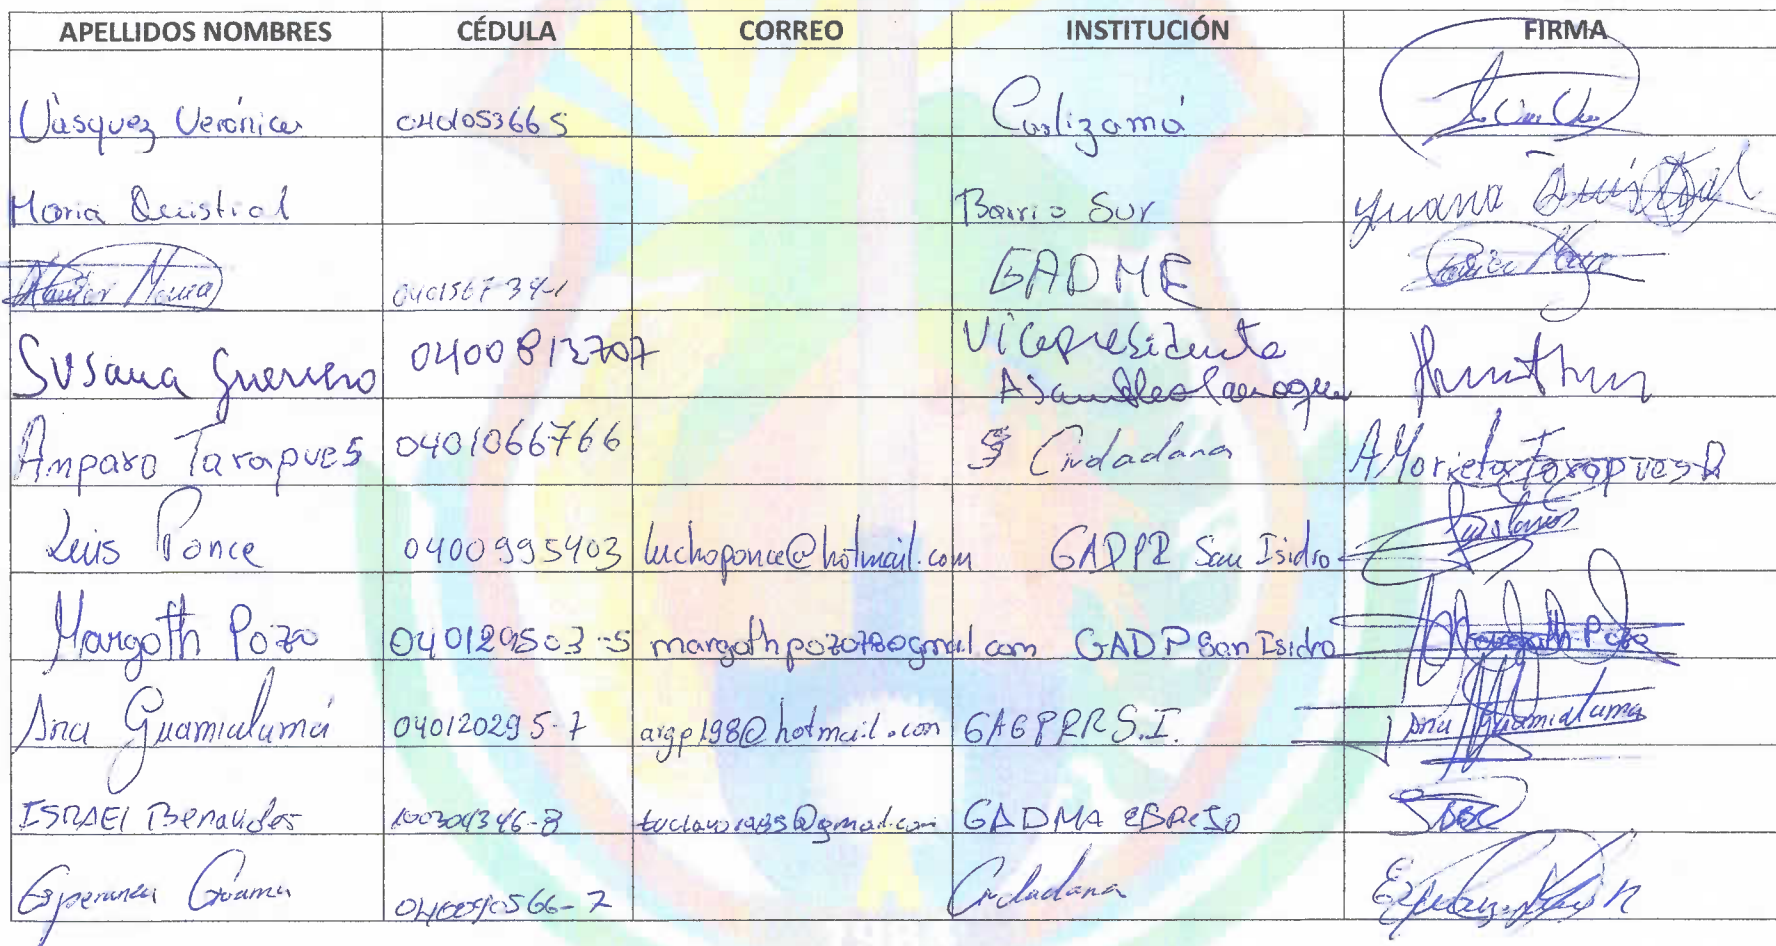 APELLIDOS NOMBRES CÉDULA CORREO INSTITUCIÓN FIRMA
Vásquez Verónica 0401053665 Carlizamá
Maria Quistial Barrio Sur
0401567394-1 GADME
Susana Guerrero 0400813707 Vicepresidenta
Asamblea
Amparo Tarapues 0401066766 Ciudadana A Marieta Tarapues
Luis Ponce 0400995403 luchoponce@hotmail.com GADPR San Isidro
Margoth Pozo 040129503-5 margothpozo78@gmail.com GADP San Isidro Margoth Pozo
Ana Guamialamá 040120295-7 argp198@hotmail.con GAGPRR S.I. Ana Guamialama
ISRAEl Benavides 100304346-8 GADMA
Esperanza Guama Ciudadana